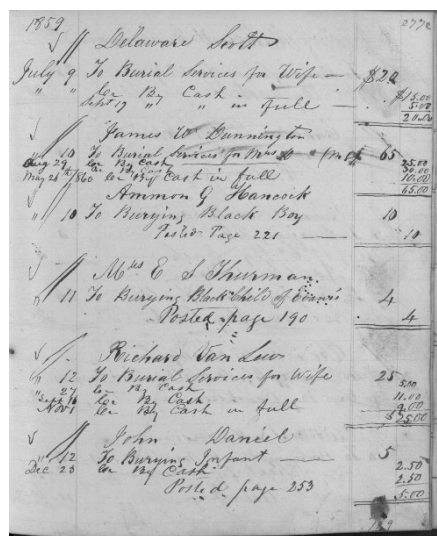 1859
Delaware Scott
July 9 To Burial Services for Wife — $20
" " Cr By Cash — $15.00
Sept 17 " " in full — 5.00
20.00
James W Dunnington
" 10 To Burial Services for Mrs 65
Aug 29 Cr By Cash 25.00
30.00
May 28th/1860 Cr By Cash in full 10.00
65.00
Ammon G Hancock
" 10 To Burying Black Boy 10
Posted Page 221 — 10
Mrs E S Thurman
" 11 To Burying Black Child of 4
Posted page 190 4
Richard Van Lew
" 12 To Burial Services for Wife 25
" 27 Cr By Cash 5.00
Sept Cr By Cash 11.00
Nov 1 Cr By Cash in full 9.00
$25.00
John Daniel
" 12 To Burying Infant — 5
Dec 23 Cr By Cash 2.50
2.50
Posted page 253 5.00